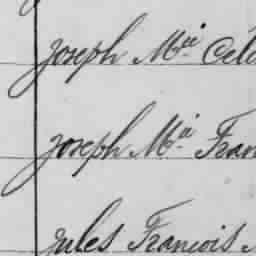 Joseph M.ie Céle
Joseph M.ie Fran
Jules François